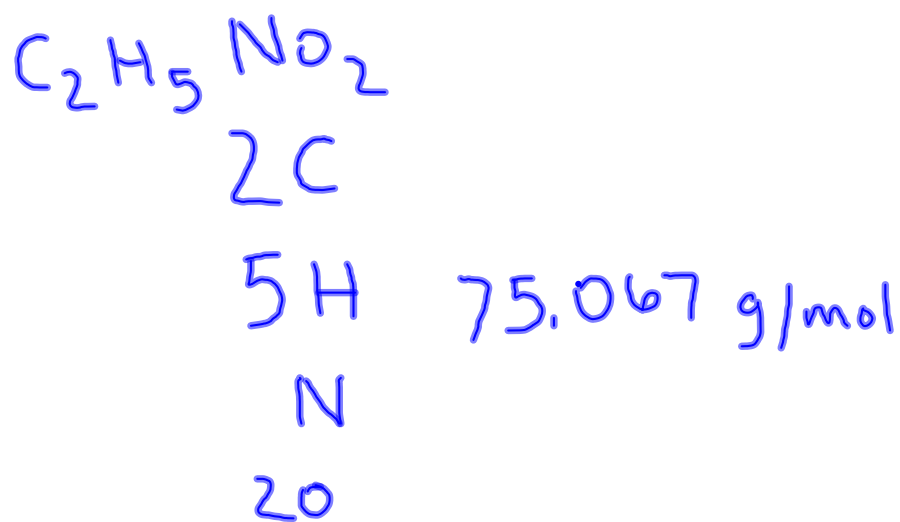 C₂H₅NO₂
2C
5H 75.067 g/mol
N
2O